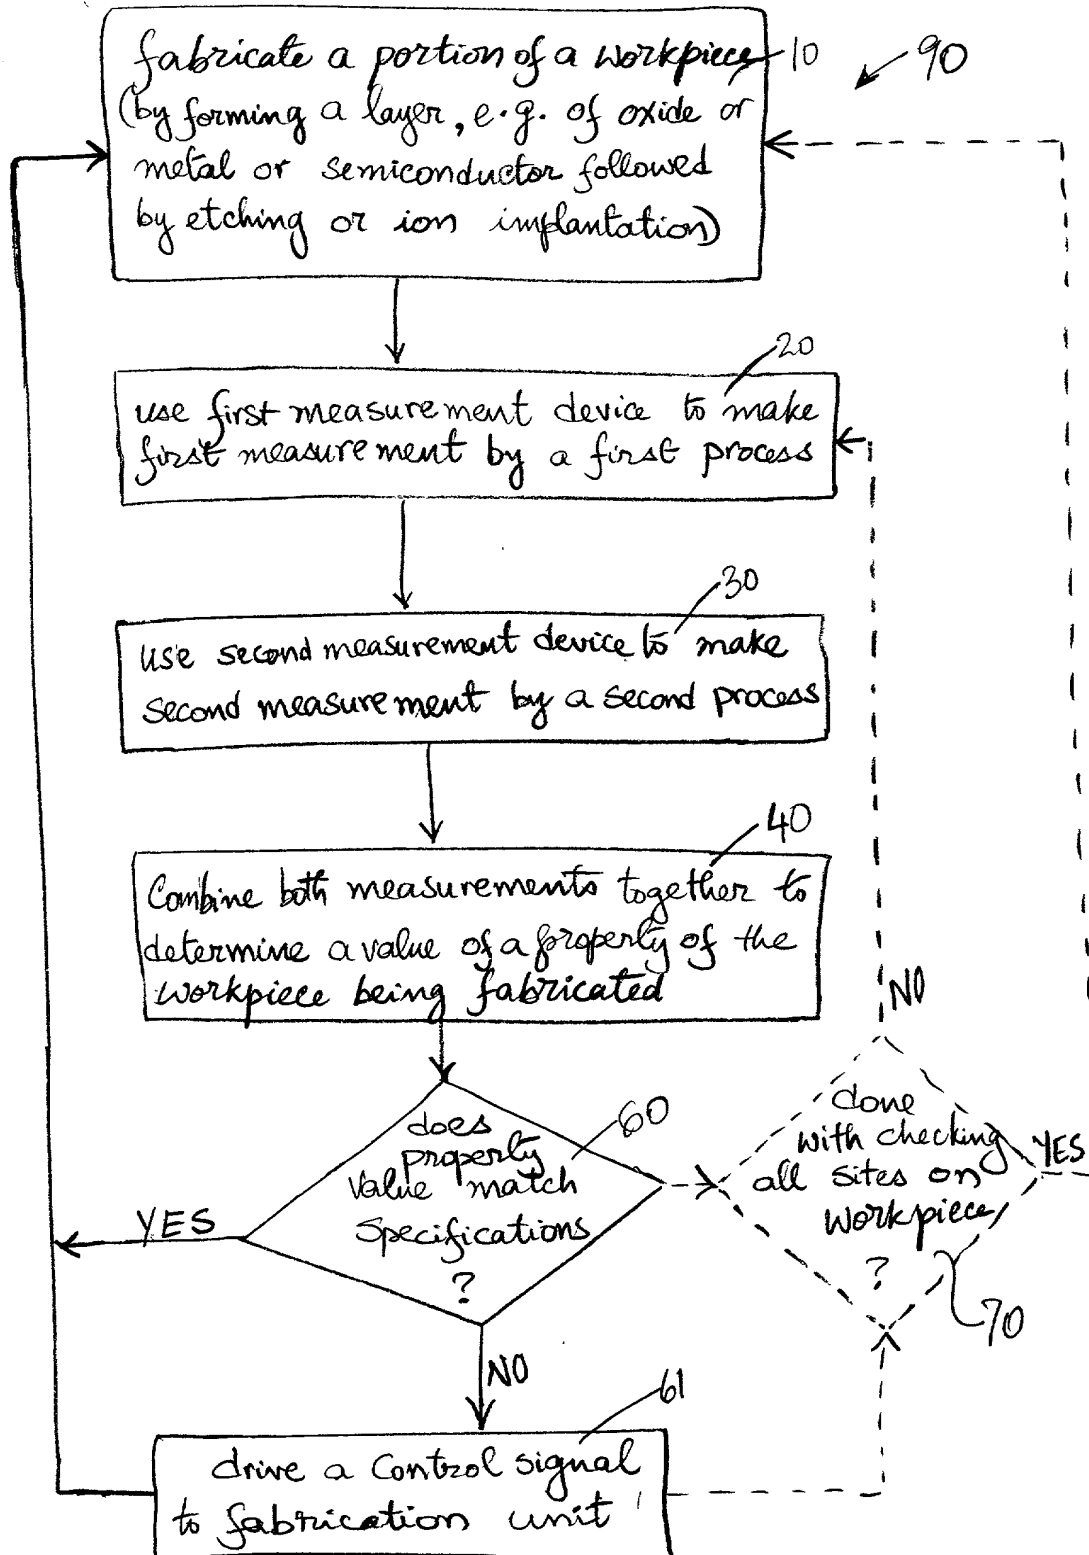 fabricate a portion of a workpiece
10
90
(by forming a layer, e.g. of oxide or
metal or semiconductor followed
by etching or ion implantation)
20
use first measurement device to make
first measurement by a first process
30
use second measurement device to make
second measurement by a second process
40
Combine both measurements together to
determine a value of a property of the
workpiece being fabricated
NO
60
does
property
value match
specifications
?
YES
done
with checking
all sites on
workpiece
?
YES
70
NO
61
drive a control signal
to fabrication unit